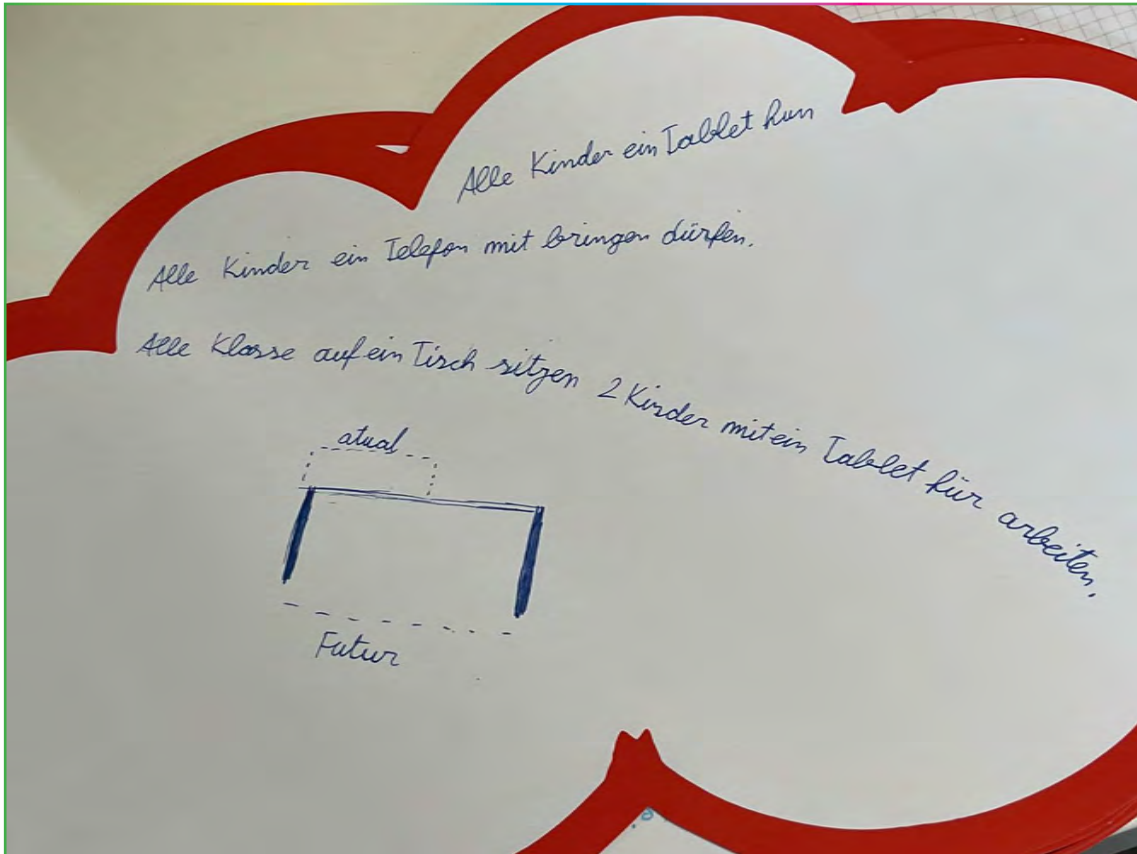 Alle Kinder ein Tablet hun
Alle Kinder ein Telefon mit bringen dürfen.
Alle Klasse auf ein Tisch sitzen 2 Kinder mit ein Tablet für arbeiten.
atual
Futur